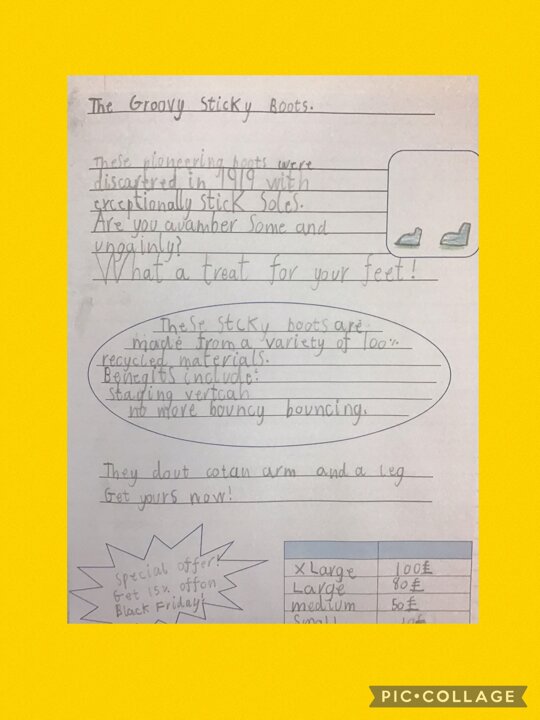 The Groovy Sticky Boots.
These pioneering boots were
discartred in 1919 with
exceptionally stick soles.
Are you avamber some and
ungainly?
What a treat for your feet!
These stcky boots are
made from a variety of 100%
recycled materials.
Benegits include:
staging vertcah
no more bouncy bouncing.
They dout cotan arm and a leg
Get yours now!
Special offer!
Get 15% offon
Black Friday!
X Large 100£
Large 80£
medium 50£
Small
PIC•COLLAGE